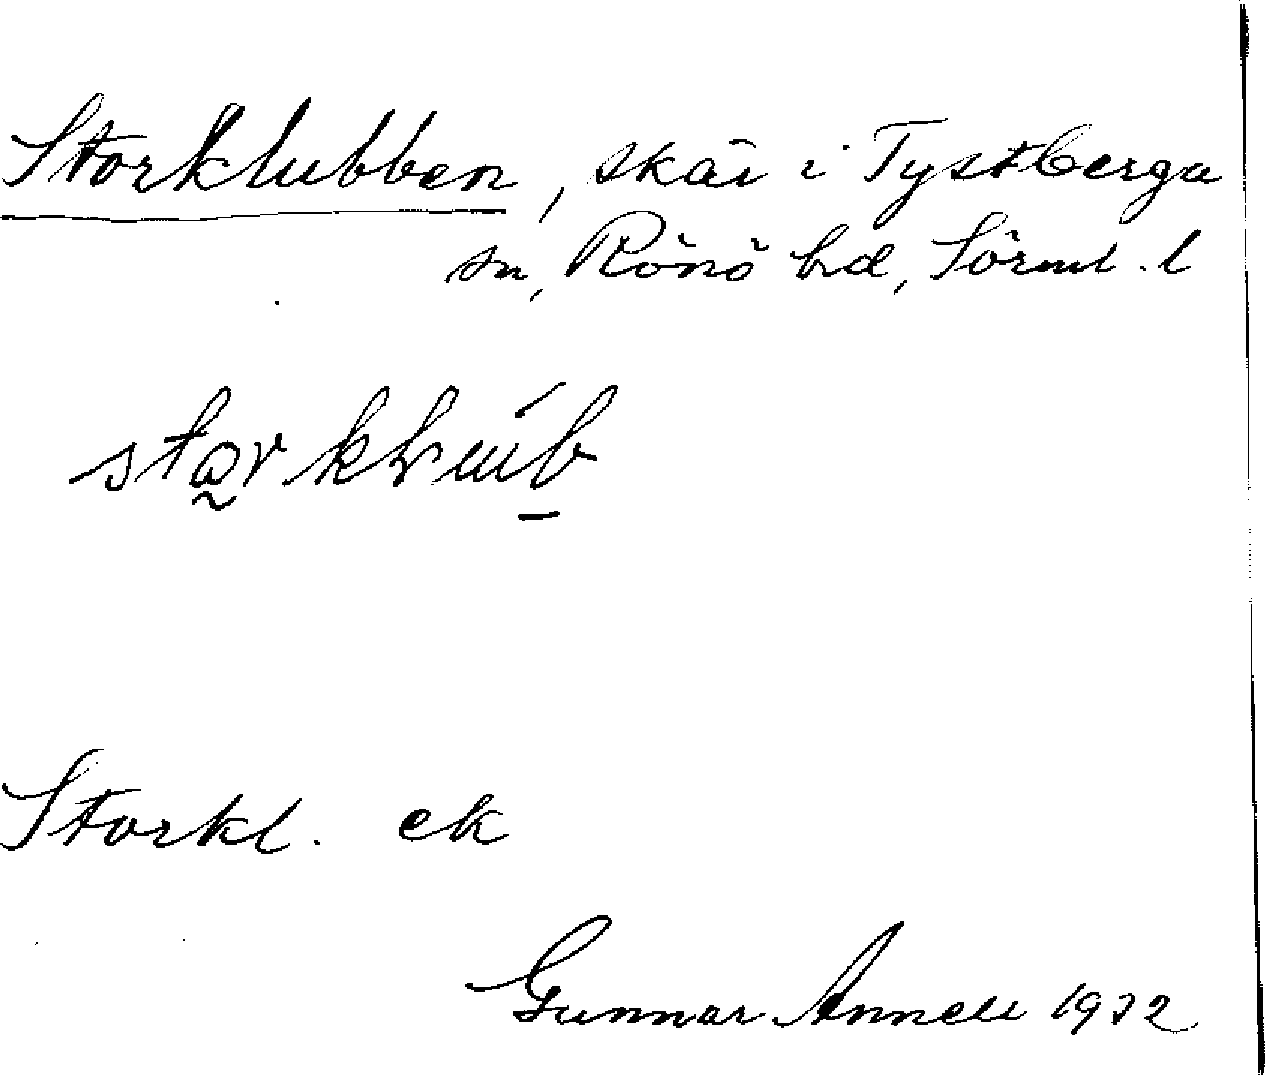 Storklubben, skär i Tystberga
sn, Rönö hd, Sörml. l
Storkl. ek
Gunnar Annell 1932